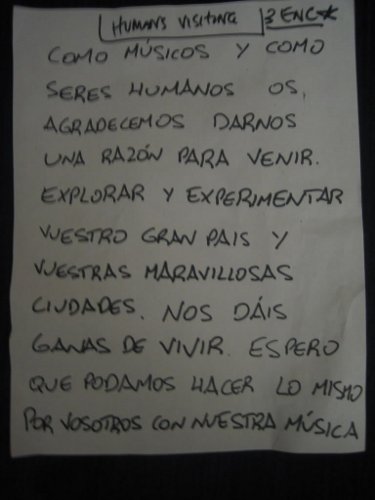 HUMANS VISITING
COMO MÚSICOS Y COMO
SERES HUMANOS OS,
AGRADECEMOS DARNOS
UNA RAZÓN PARA VENIR.
EXPLORAR Y EXPERIMENTAR
VUESTRO GRAN PAIS Y
VUESTRAS MARAVILLOSAS
CIUDADES. NOS DÁIS
GANAS DE VIVIR. ESPERO
QUE PODAMOS HACER LO MISMO
POR VOSOTROS CON NUESTRA MÚSICA